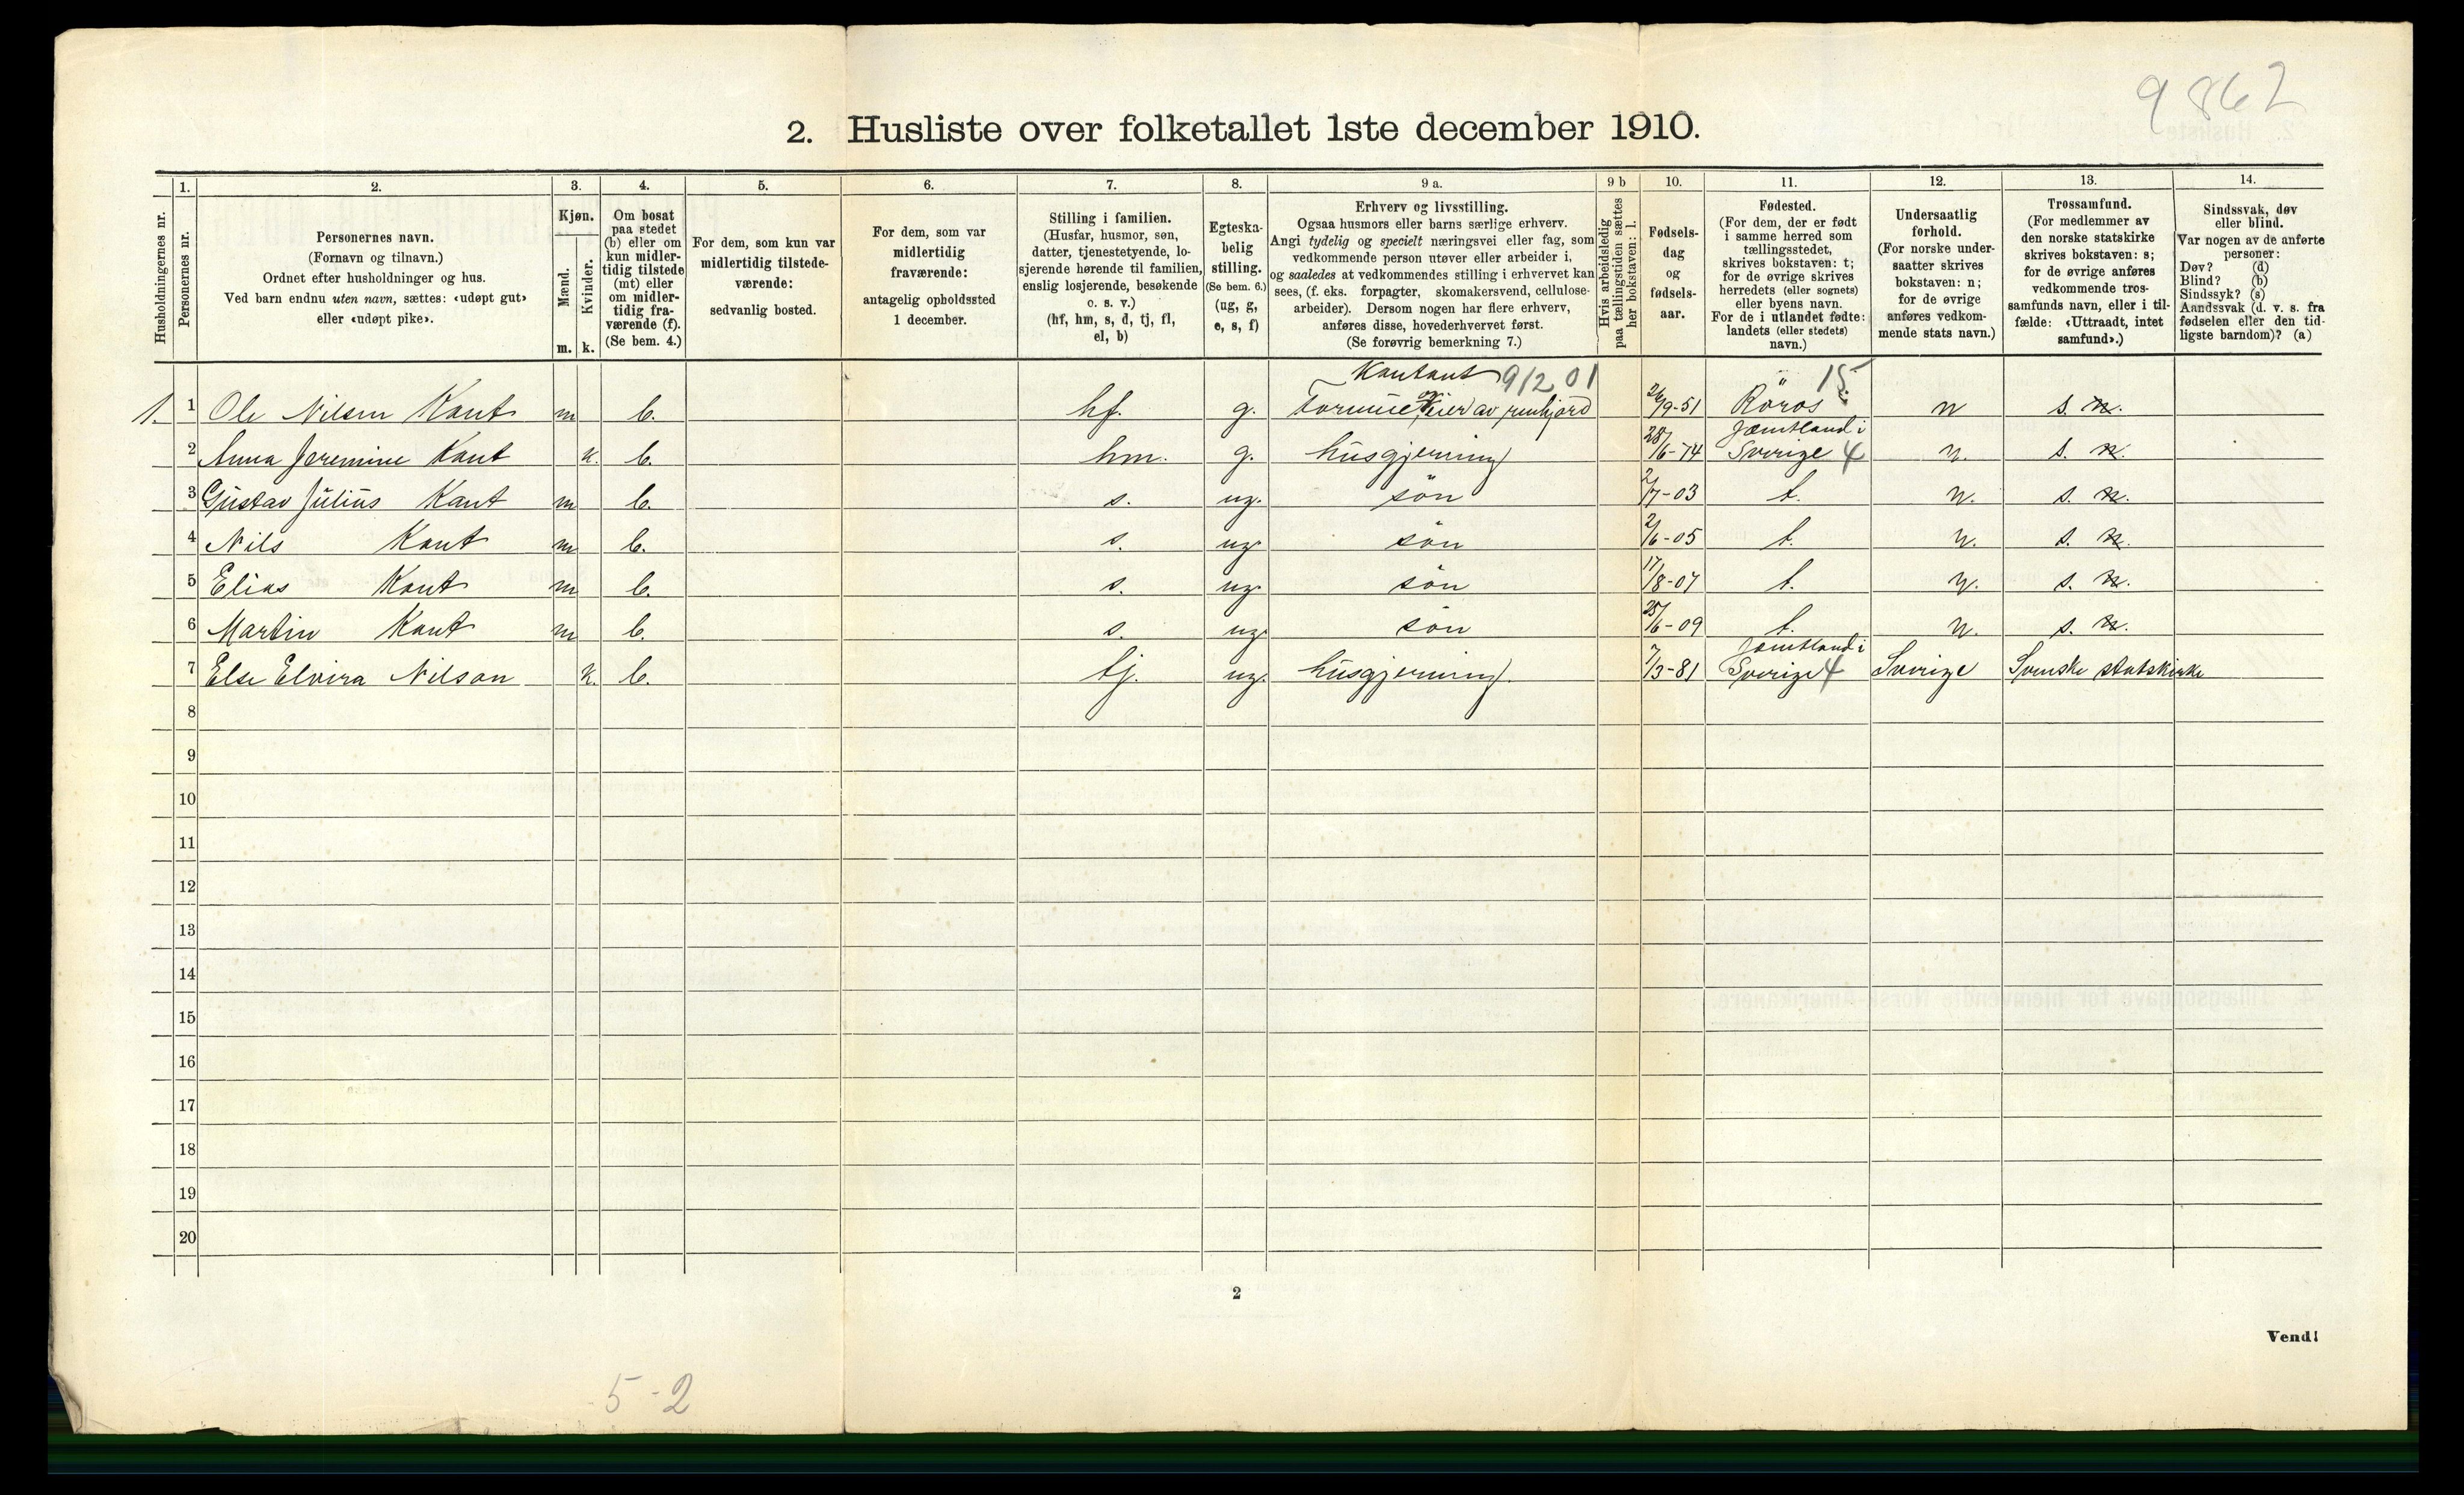 9862
2. Husliste over folketallet 1ste december 1910.
Husholdningernes nr.
1.
Personernes nr.
2.
Personernes navn.
(Fornavn og tilnavn.)
Ordnet efter husholdninger og hus.
Ved barn endnu uten navn, sættes: «udøpt gut»
eller «udøpt pike».
3.
Kjøn.
Mænd.
Kvinder.
m. k.
4.
Om bosat
paa stedet
(b) eller om
kun midler-
tidig tilstede
(mt) eller
om midler-
tidig fra-
værende (f).
(Se bem. 4.)
5.
For dem, som kun var
midlertidig tilstede-
værende:
sedvanlig bosted.
6.
For dem, som var
midlertidig
fraværende:
antagelig opholdssted
1 december.
7.
Stilling i familien.
(Husfar, husmor, søn,
datter, tjenestetyende, lo-
sjerende hørende til familien,
enslig losjerende, besøkende
o. s. v.)
(hf, hm, s, d, tj, fl,
el, b)
8.
Egteska-
belig
stilling.
(Se bem. 6.)
(ug, g,
e, s, f)
9 a.
Erhverv og livsstilling.
Ogsaa husmors eller barns særlige erhverv.
Angi tydelig og specielt næringsvei eller fag, som
vedkommende person utøver eller arbeider i,
og saaledes at vedkommendes stilling i erhvervet kan
sees, (f. eks. forpagter, skomakersvend, cellulose-
arbeider). Dersom nogen har flere erhverv,
anføres disse, hovederhvervet først.
(Se forøvrig bemerkning 7.)
9 b
Hvis arbeidsledig
paa tællingstiden sættes
her bokstaven: l.
10.
Fødsels-
dag
og
fødsels-
aar.
11.
Fødested.
(For dem, der er født
i samme herred som
tællingsstedet,
skrives bokstaven: t;
for de øvrige skrives
herredets (eller sognets)
eller byens navn.
For de i utlandet fødte:
landets (eller stedets)
navn.)
12.
Undersaatlig
forhold.
(For norske under-
saatter skrives
bokstaven: n;
for de øvrige
anføres vedkom-
mende stats navn.)
13.
Trossamfund.
(For medlemmer av
den norske statskirke
skrives bokstaven: s;
for de øvrige anføres
vedkommende tros-
samfunds navn, eller i til-
fælde: «Uttraadt, intet
samfund».)
14.
Sindssvak, døv
eller blind.
Var nogen av de anførte
personer:
Døv? (d)
Blind? (b)
Sindssyk? (s)
Aandssvak (d. v. s. fra
fødselen eller den tid-
ligste barndom)? (a)
91201 15
1. 1 Ole Nilsen Kant m b. hf. g. eier av renhjord 26/9-51 Röros n s. n.
Jæmtland i
2 Anna Jeremine Kant k. b. hm. g. husgjerning 28/6-74 Sverige 4 n. s. n.
3 Gustav Julius Kant m b. s. ug. sön 2/7-03 t. n. s. n.
4 Nils Kant m b. s. ug. sön 2/6-05 t. n. s. n.
5 Elias Kant m b. s. ug. sön 17/8-07 t. n. s. n.
6 Martin Kant m b. s. ug. sön 25/6-09 t. n. s. n.
Jæmtland i
7 Else Elvira Nilson k. b. tj. ug. husgjerning. 7/3-81 Sverige 4 Sverige Svenske statskirke
8
9
10
11
12
13
14
15
16
17
18
19
20
2
Vend!
5-2